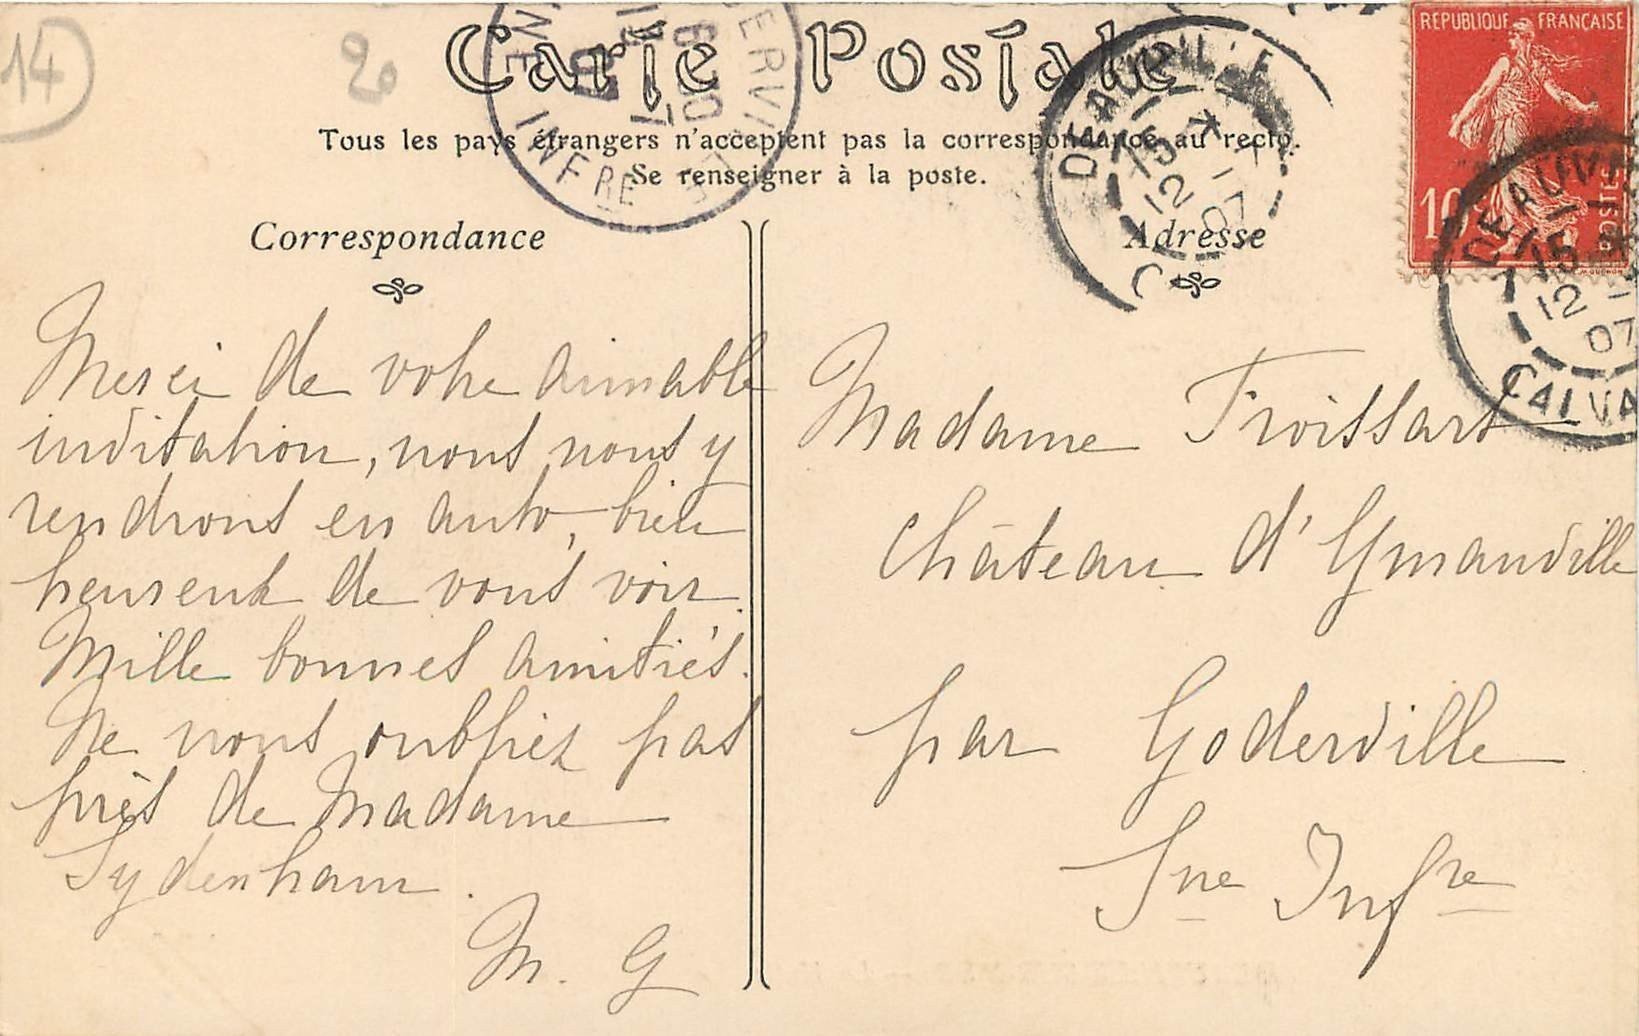 14
20
Carte Postale
Tous les pays étrangers n'acceptent pas la correspondance au recto.
Se renseigner à la poste.
Correspondance
Merci de votre aimable
invitation, nous nous y
rendrons en auto, bien
heureux de vous voir.
Mille bonnes amitiés.
Ne nous oubliez pas
près de Madame
Sydenham.
M. G
Adresse
Madame Froissart
Château d'Ymauville
par Goderville
Sne Infre
REPUBLIQUE FRANÇAISE
10
POSTES
DEAUVILLE
15
12 07
DEAUVI
15
12
07
CALVA
DERVILLE
INFRE